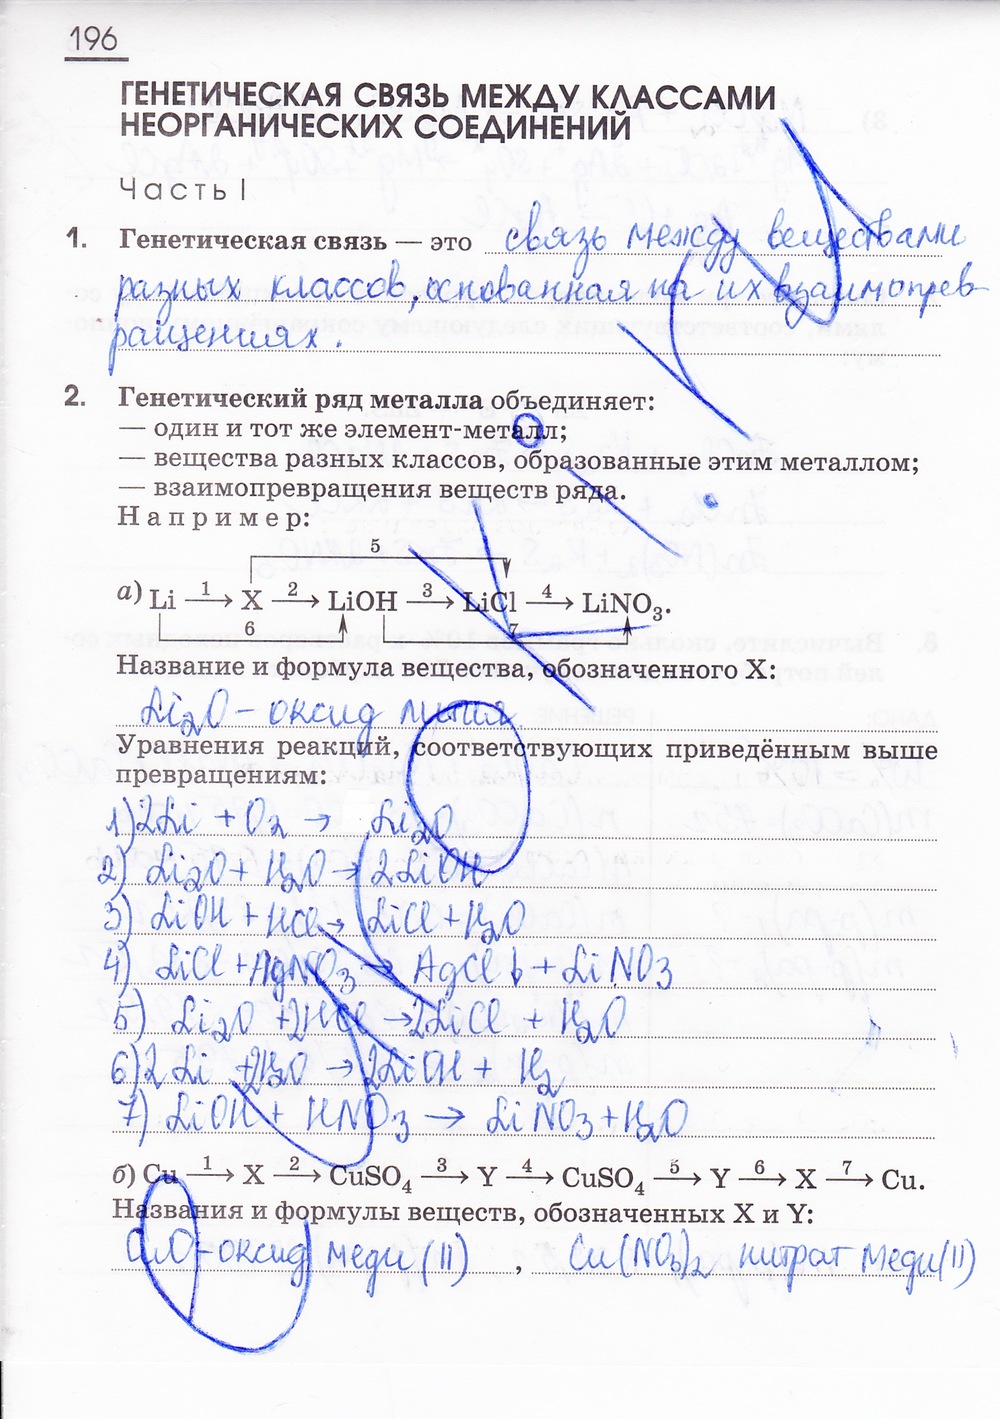 196
ГЕНЕТИЧЕСКАЯ СВЯЗЬ МЕЖДУ КЛАССАМИ
НЕОРГАНИЧЕСКИХ СОЕДИНЕНИЙ
Часть I
1. Генетическая связь — это связь между веществами
разных классов, основанная на их взаимопрев-
ращениях.
2. Генетический ряд металла объединяет:
— один и тот же элемент-металл;
— вещества разных классов, образованные этим металлом;
— взаимопревращения веществ ряда.
Например:
5
а) Li —1→ X —2→ LiOH —3→ LiCl —4→ LiNO₃.
6 7
Название и формула вещества, обозначенного X:
Li₂O – оксид лития
Уравнения реакций, соответствующих приведённым выше
превращениям:
1) 2Li + O₂ → Li₂O
2) Li₂O + H₂O → 2LiOH
3) LiOH + HCl → LiCl + H₂O
4) LiCl + AgNO₃ → AgCl↓ + LiNO₃
5) Li₂O + 2HCl → 2LiCl + H₂O
6) 2Li + 2H₂O → 2LiOH + H₂
7) LiOH + HNO₃ → LiNO₃ + H₂O
б) Cu —1→ X —2→ CuSO₄ —3→ Y —4→ CuSO₄ —5→ Y —6→ X —7→ Cu.
Названия и формулы веществ, обозначенных X и Y:
CuO – оксид меди (II) , Cu(NO₃)₂ нитрат меди (II)